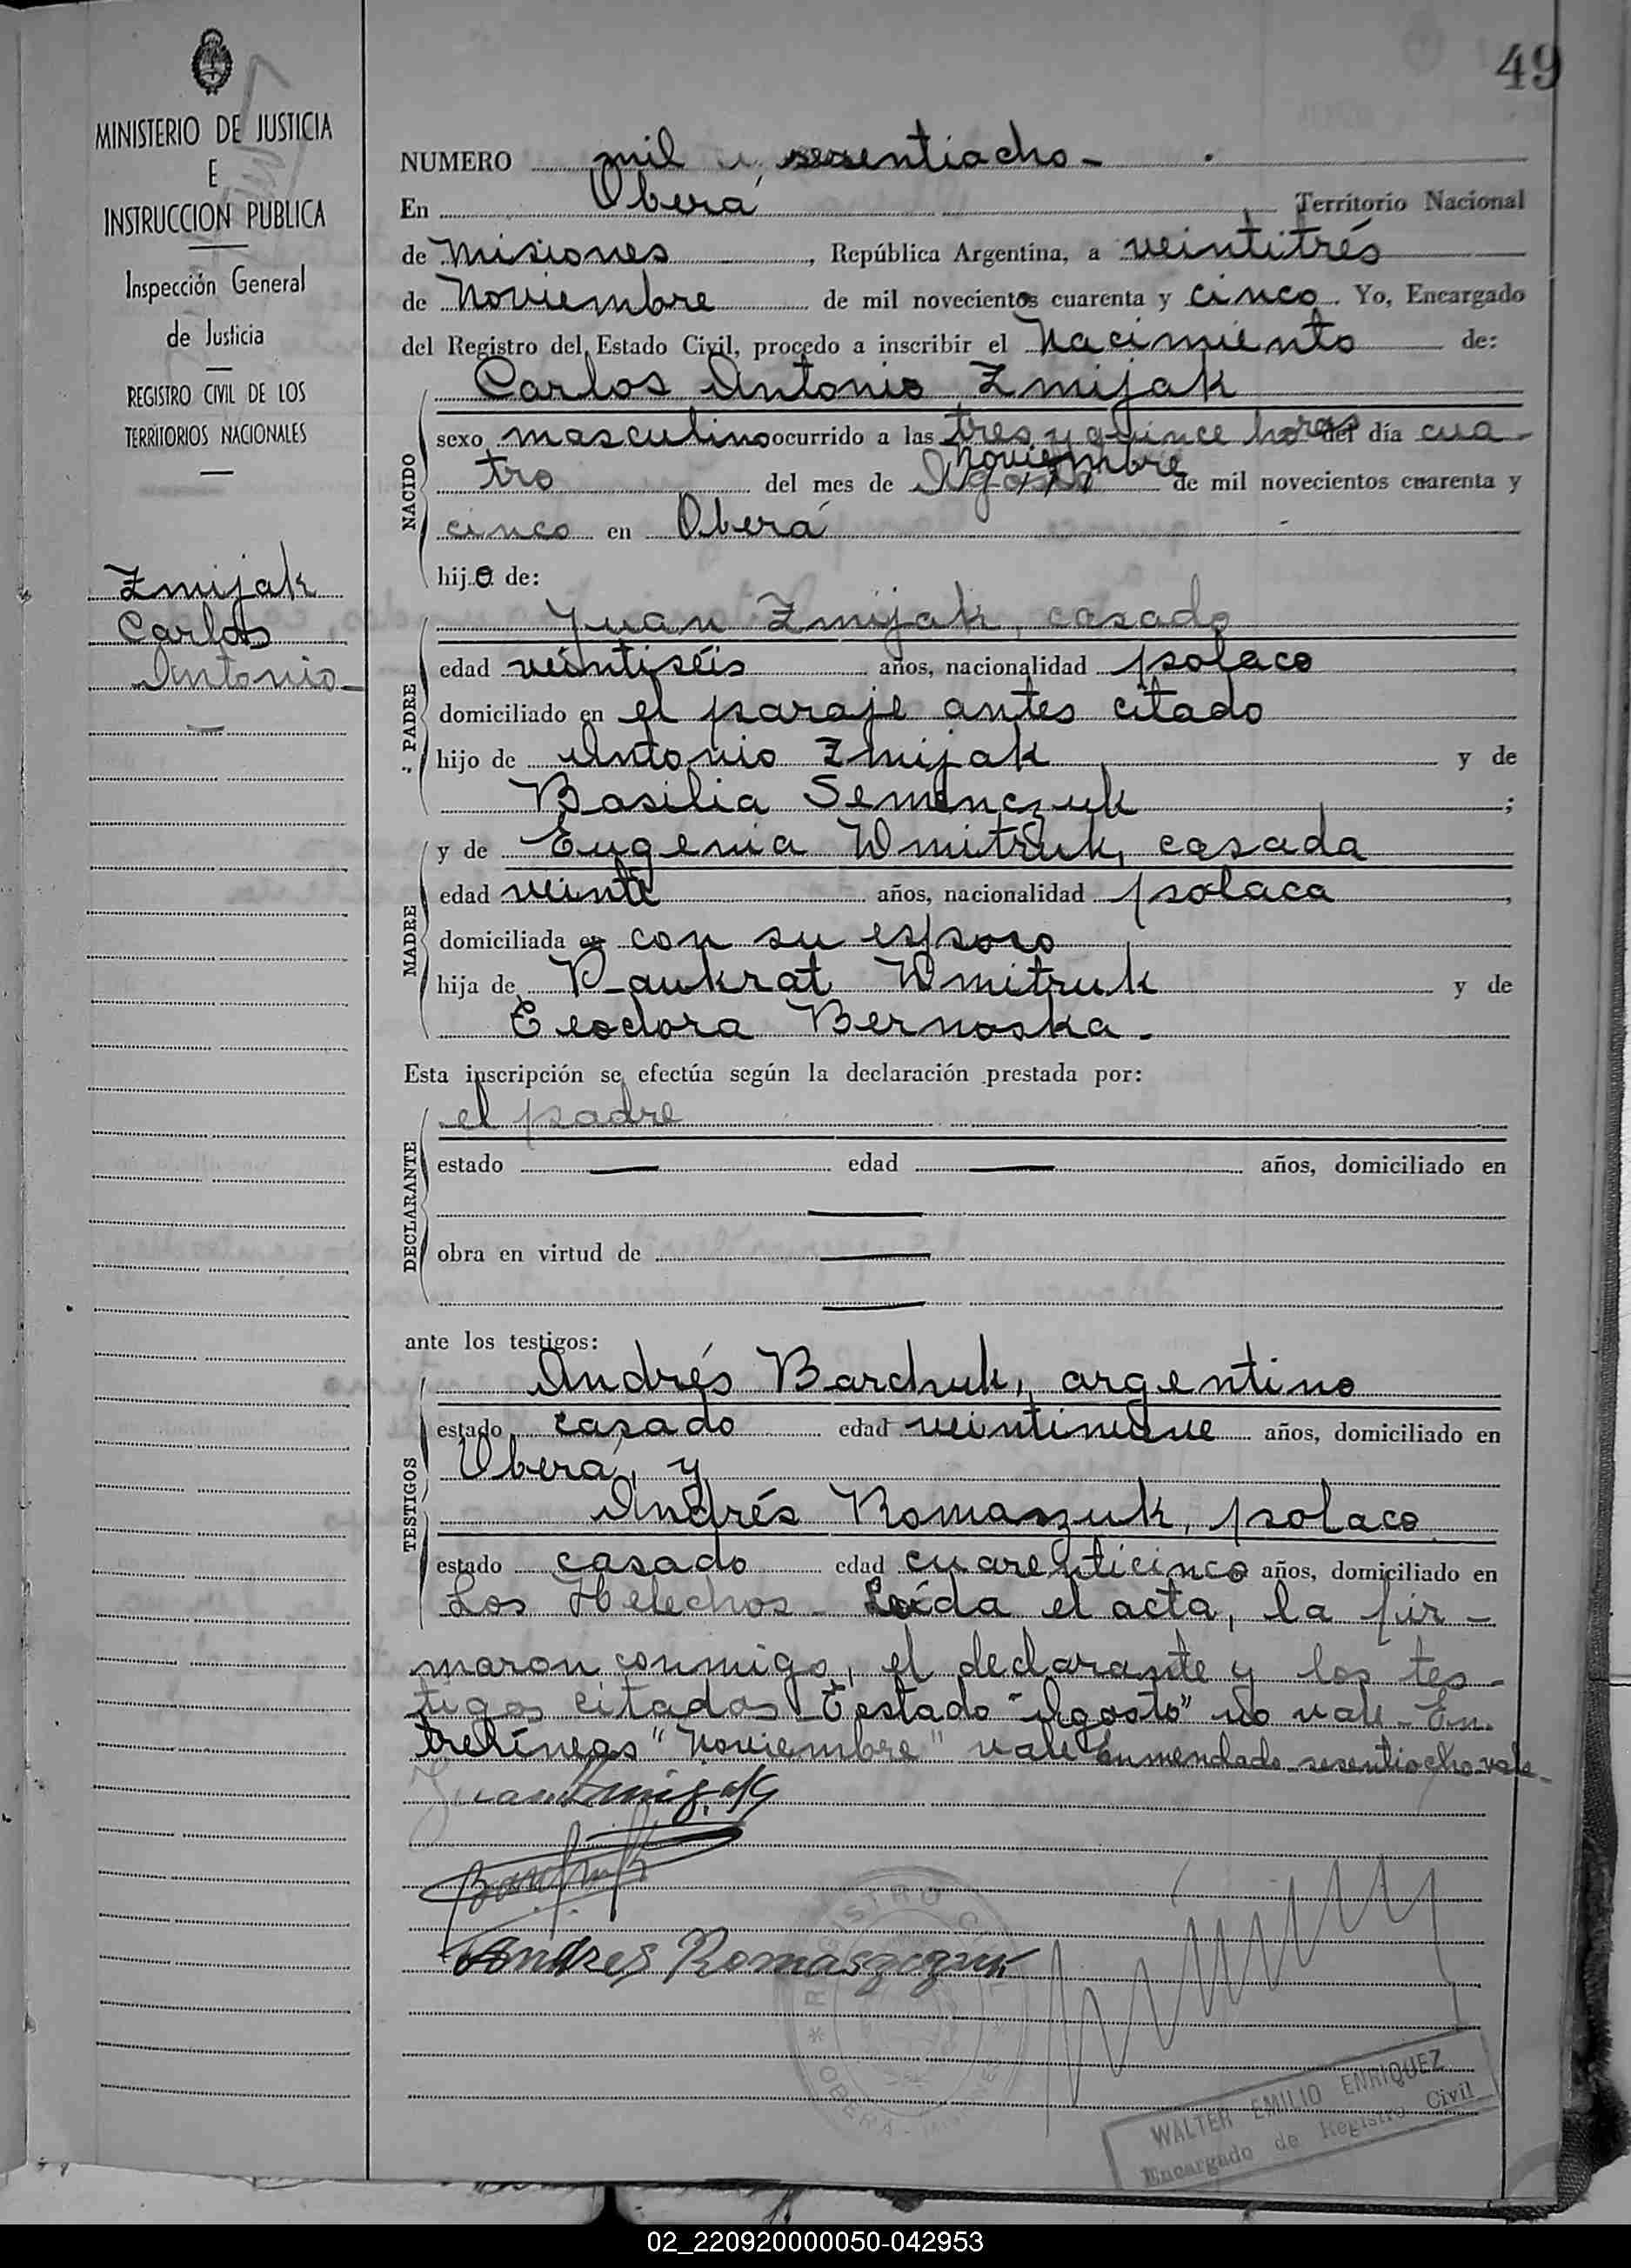 49
MINISTERIO DE JUSTICIA
E
INSTRUCCION PUBLICA
Inspección General
de Justicia
REGISTRO CIVIL DE LOS
TERRITORIOS NACIONALES
Zmijak
Carlos
Antonio
NUMERO mil sesentiocho
En Oberá Territorio Nacional
de Misiones, República Argentina, a veintitrés
de Noviembre de mil novecientos cuarenta y cinco. Yo, Encargado
del Registro del Estado Civil, procedo a inscribir el Nacimiento de:
NACIDO
Carlos Antonio Zmijak
sexo masculino ocurrido a las tres y quince horas del día cua-
Noviembre
tro del mes de Agosto de mil novecientos cuarenta y
cinco en Oberá
hijo de:
PADRE
Juan Zmijak, casado
edad veintiséis años, nacionalidad polaco,
domiciliado en el paraje antes citado
hijo de Antonio Zmijak y de
Basilia Semenczuk;
MADRE
y de Eugenia Wmitruk, casada
edad veinte años, nacionalidad polaca,
domiciliada en con su esposo
hija de Paukrat Wmitruk y de
Teodora Bernoska.
Esta inscripción se efectúa según la declaración prestada por:
DECLARANTE
el padre
estado — edad — años, domiciliado en
—
obra en virtud de —
—
ante los testigos:
TESTIGOS
Andrés Barchuk, argentino
estado casado edad veintinueve años, domiciliado en
Oberá, y
Andrés Romaszuk, polaco
estado casado edad cuarenticinco años, domiciliado en
Los Helechos - Leída el acta, la fir-
maron conmigo, el declarante y los tes-
tigos citados - Testado "Agosto" no vale - En-
trelíneas "Noviembre" vale Enmendado sesentiocho vale-
Juan Zmijak
Andres Romaszczuk
REGISTRO CIVIL
OBERA - MISIONES
WALTER EMILIO ENRIQUEZ
Encargado de Registro Civil
02_220920000050-042953